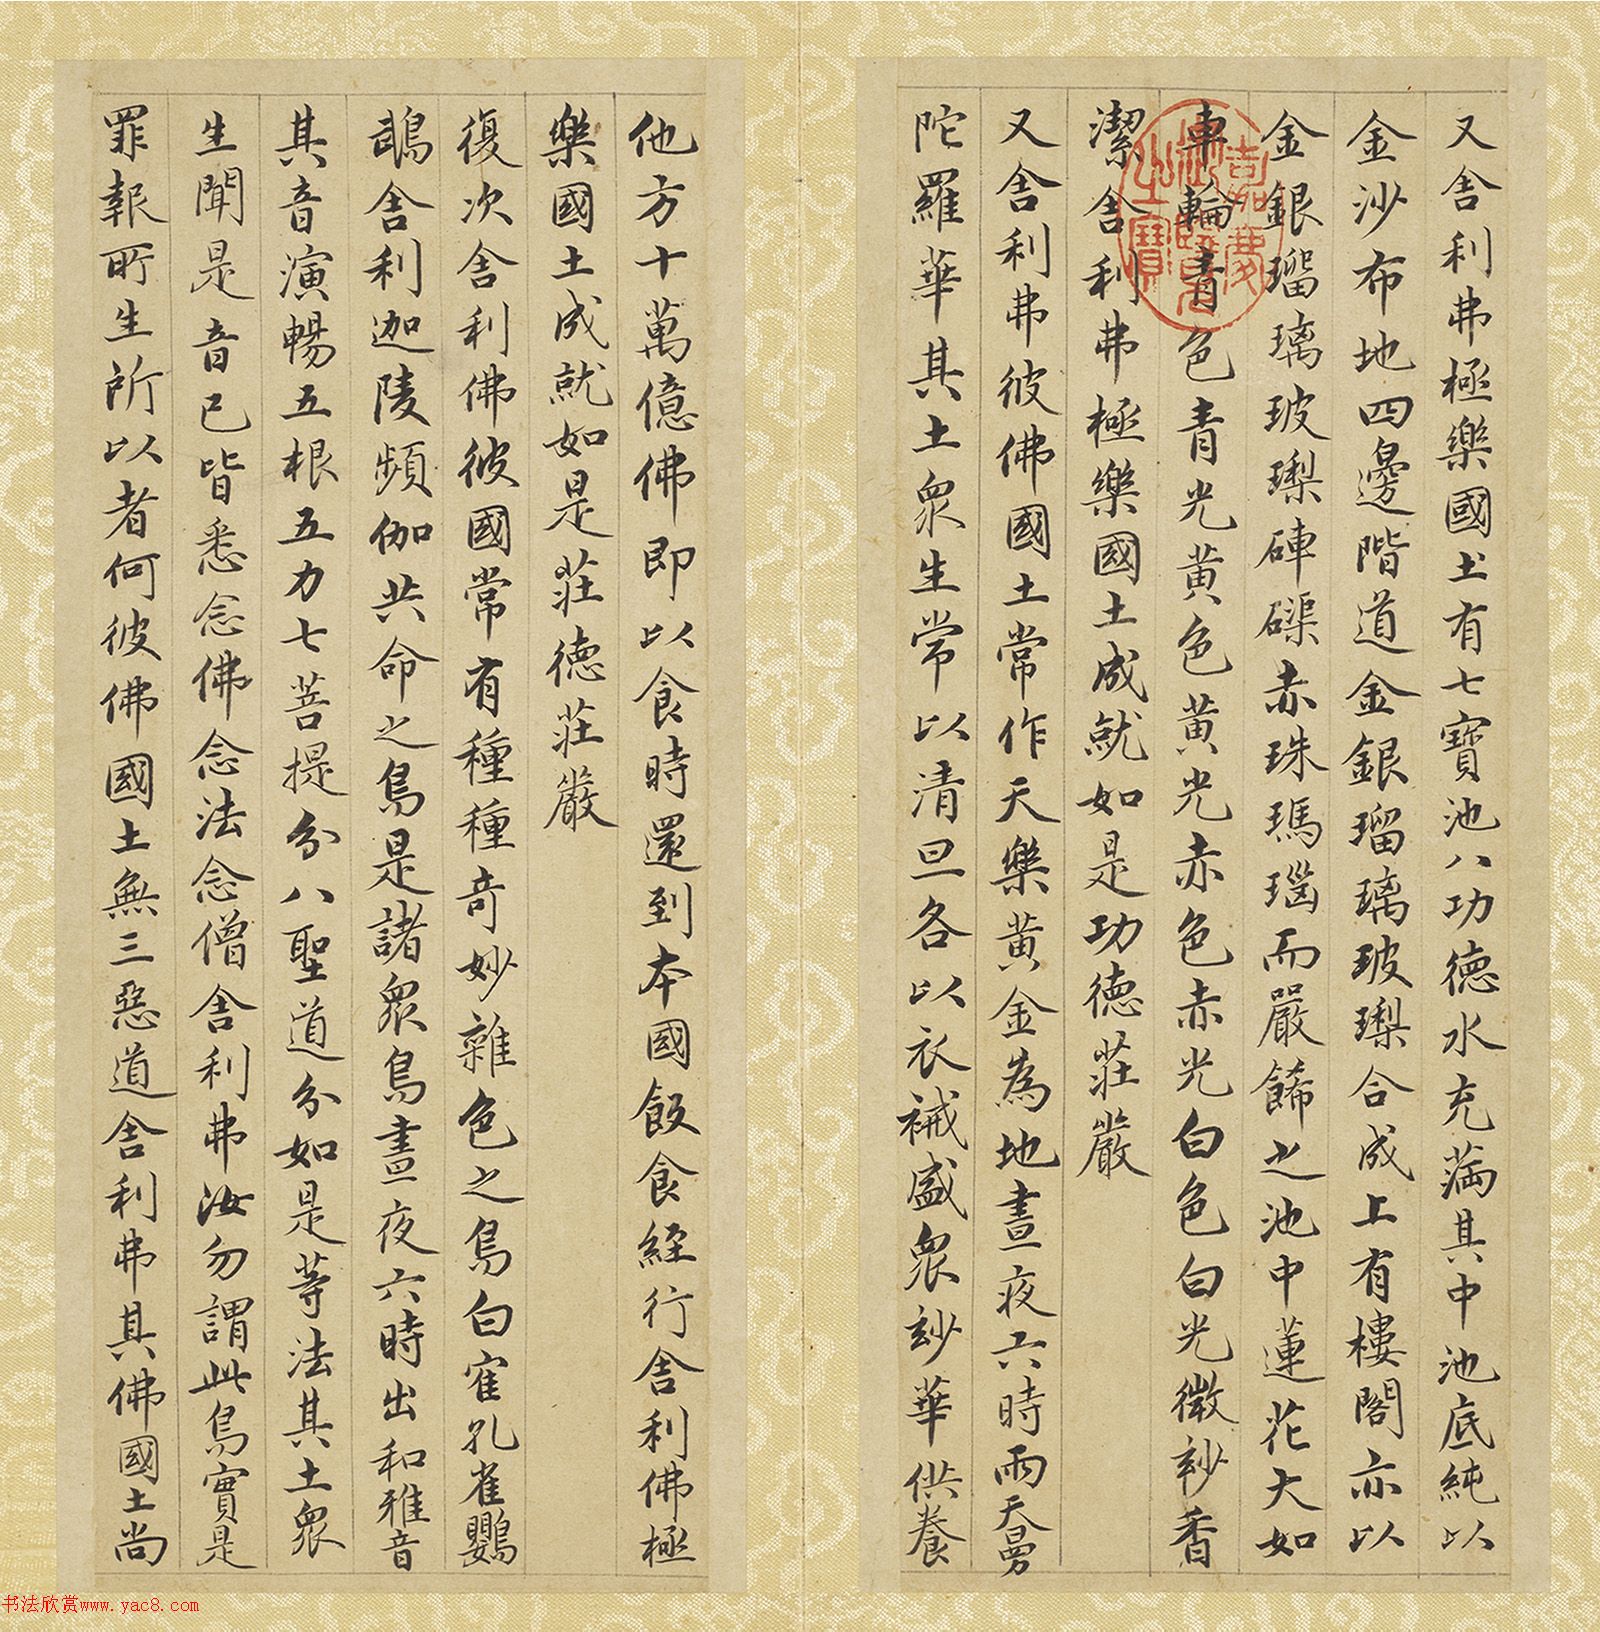 又舍利弗極樂國土有七寶池八功德水充滿其中池底純以
金沙布地四邊階道金銀瑠璃玻瓈合成上有樓閣亦以
金銀瑠璃玻瓈硨磲赤珠瑪瑙而嚴餙之池中蓮花大如
車輪青色青光黃色黃光赤色赤光白色白光微玅香
潔舍利弗極樂國土成就如是功德莊嚴
又舍利弗彼佛國土常作天樂黃金為地晝夜六時雨天曼
陀羅華其土眾生常以清旦各以衣裓盛眾玅華供養
他方十萬億佛即以食時還到本國飯食經行舍利佛極
樂國土成就如是莊德莊嚴
復次舍利佛彼國常有種種奇妙雜色之鳥白隺孔雀鸚
鵡舍利迦陵頻伽共命之鳥是諸眾鳥晝夜六時出和雅音
其音演暢五根五力七菩提分八聖道分如是等法其土眾
生聞是音已皆悉念佛念法念僧舍利弗汝勿謂此鳥實是
罪報所生所以者何彼佛國土無三惡道舍利弗其佛國土尚
嘉慶御覽之寶
书法欣赏www.yac8.com